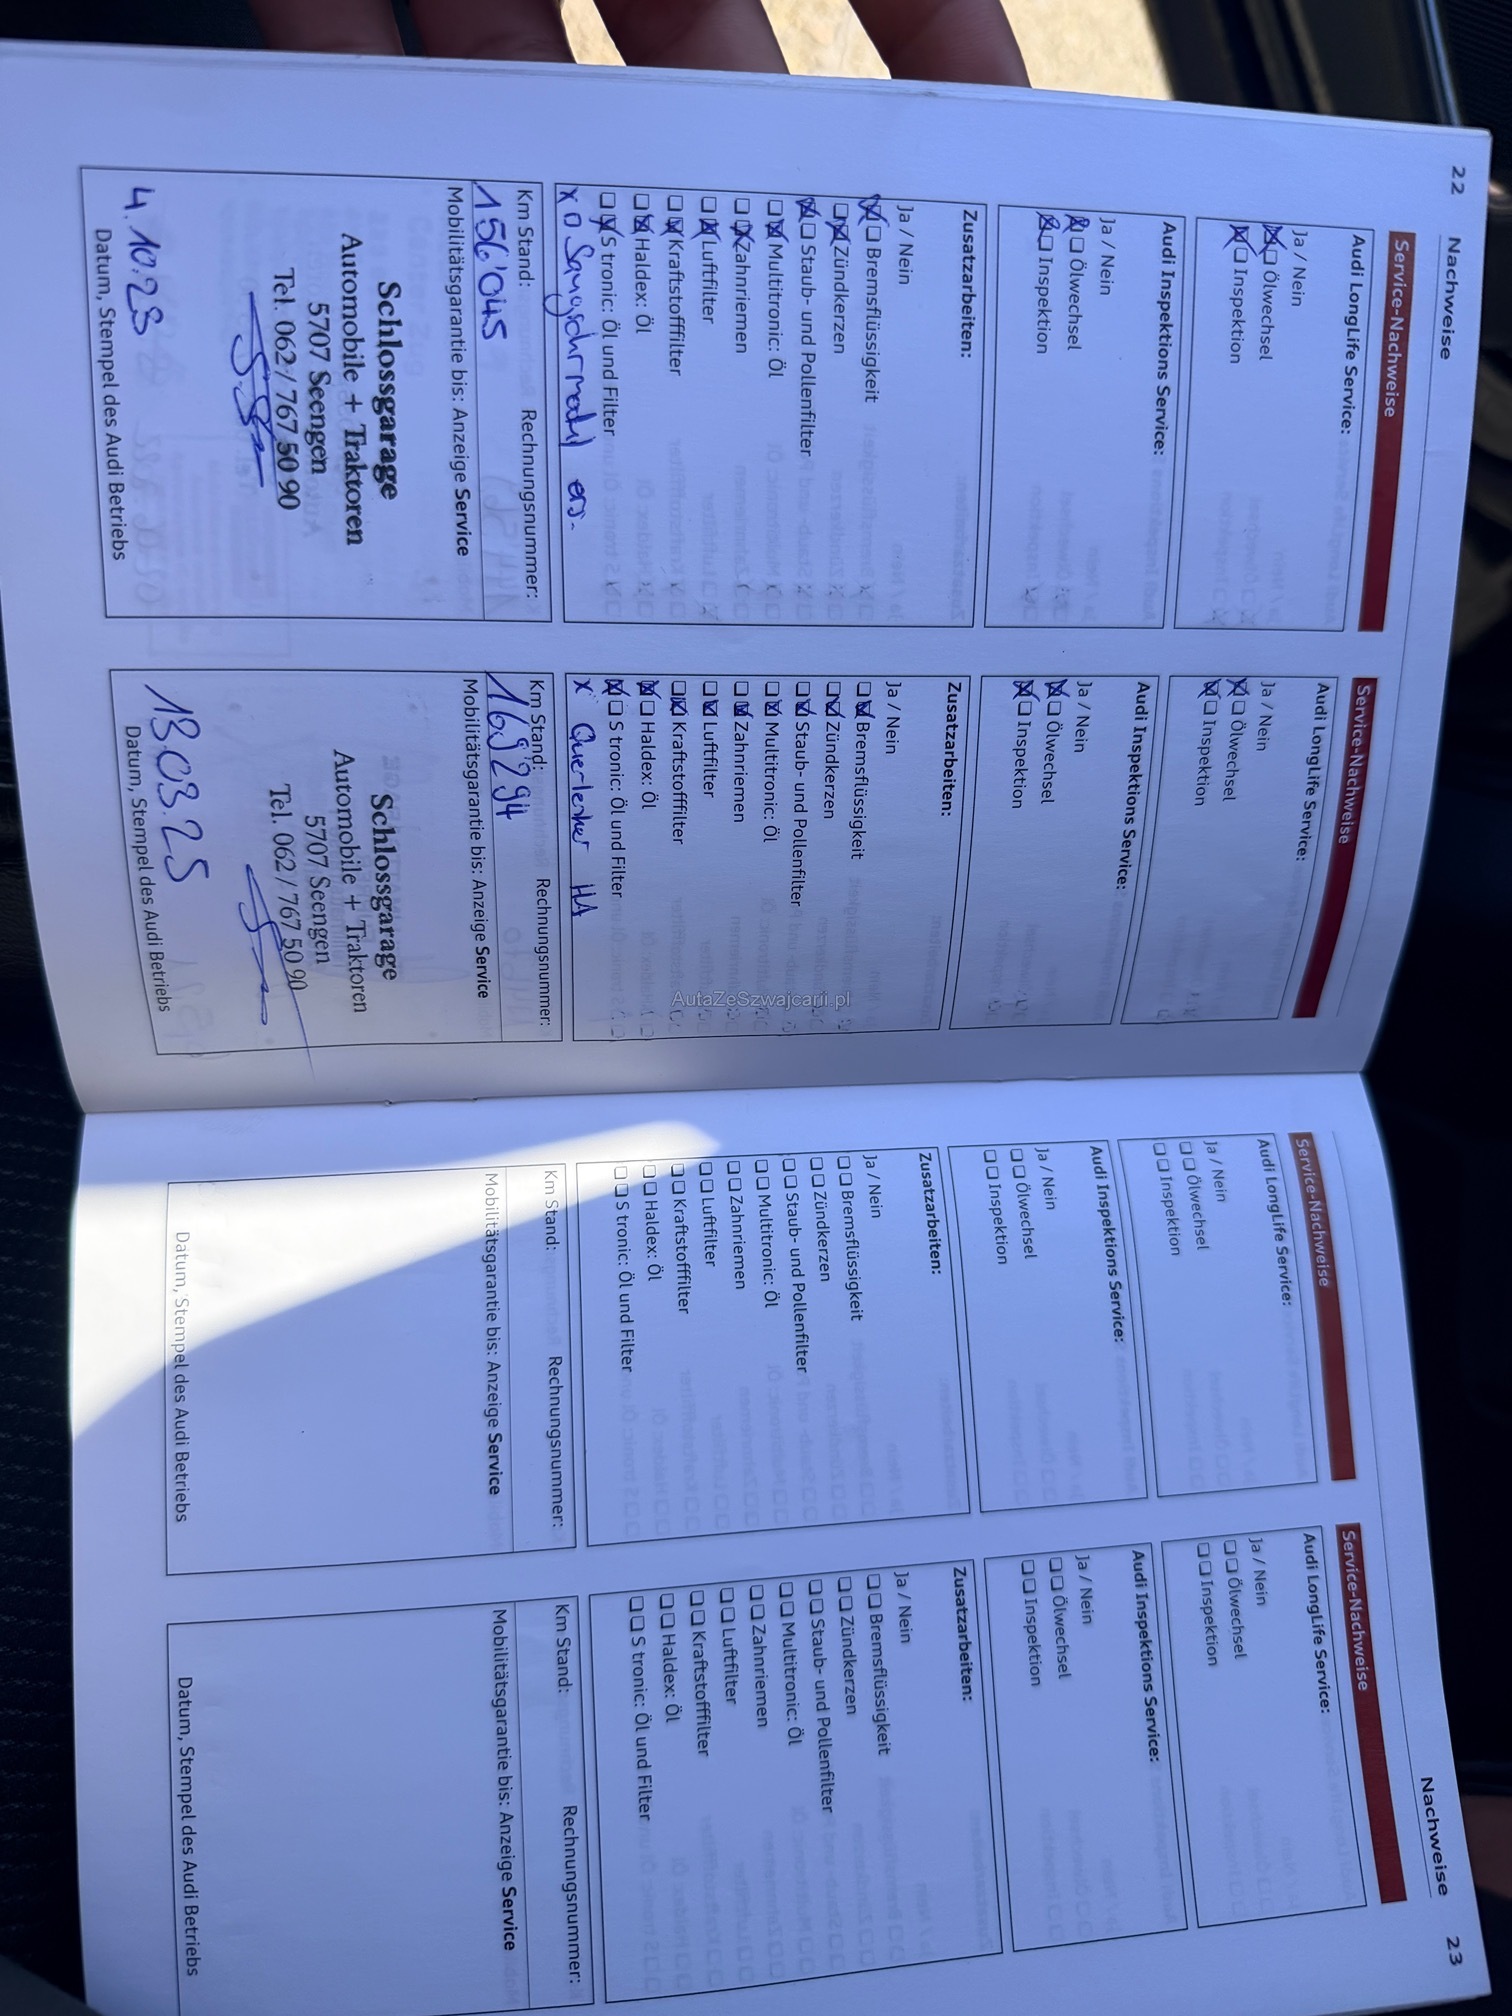 22 Nachweise
Service-Nachweise
Audi LongLife Service:
Ja / Nein
☒ ☐ Ölwechsel
☒ ☐ Inspektion
Audi Inspektions Service:
Ja / Nein
☒ ☐ Ölwechsel
☒ ☐ Inspektion
Zusatzarbeiten:
Ja / Nein
☒ ☐ Bremsflüssigkeit
☐ ☒ Zündkerzen
☒ ☐ Staub- und Pollenfilter
☐ ☒ Multitronic: Öl
☐ ☒ Zahnriemen
☐ ☒ Luftfilter
☐ ☒ Kraftstofffilter
☐ ☒ Haldex: Öl
☐ ☒ S tronic: Öl und Filter
ers.
Km Stand: Rechnungsnummer:
156'045
Mobilitätsgarantie bis: Anzeige Service
Schlossgarage
Automobile + Traktoren
5707 Seengen
Tel. 062 / 767 50 90
4.10.23
Datum, Stempel des Audi Betriebs
Service-Nachweise
Audi LongLife Service:
Ja / Nein
☒ ☐ Ölwechsel
☒ ☐ Inspektion
Audi Inspektions Service:
Ja / Nein
☒ ☐ Ölwechsel
☒ ☐ Inspektion
Zusatzarbeiten:
Ja / Nein
☐ ☒ Bremsflüssigkeit
☐ ☒ Zündkerzen
☐ ☒ Staub- und Pollenfilter
☐ ☒ Multitronic: Öl
☐ ☒ Zahnriemen
☐ ☒ Luftfilter
☐ ☒ Kraftstofffilter
☒ ☐ Haldex: Öl
☒ ☐ S tronic: Öl und Filter
x Querlenker HA
Km Stand: Rechnungsnummer:
169'294
Mobilitätsgarantie bis: Anzeige Service
Schlossgarage
Automobile + Traktoren
5707 Seengen
Tel. 062 / 767 50 90
13.03.25
Datum, Stempel des Audi Betriebs
AutaZeSzwajcarii.pl
Nachweise 23
Service-Nachweise
Audi LongLife Service:
Ja / Nein
☐ ☐ Ölwechsel
☐ ☐ Inspektion
Audi Inspektions Service:
Ja / Nein
☐ ☐ Ölwechsel
☐ ☐ Inspektion
Zusatzarbeiten:
Ja / Nein
☐ ☐ Bremsflüssigkeit
☐ ☐ Zündkerzen
☐ ☐ Staub- und Pollenfilter
☐ ☐ Multitronic: Öl
☐ ☐ Zahnriemen
☐ ☐ Luftfilter
☐ ☐ Kraftstofffilter
☐ ☐ Haldex: Öl
☐ ☐ S tronic: Öl und Filter
Km Stand: Rechnungsnummer:
Mobilitätsgarantie bis: Anzeige Service
Datum, Stempel des Audi Betriebs
Service-Nachweise
Audi LongLife Service:
Ja / Nein
☐ ☐ Ölwechsel
☐ ☐ Inspektion
Audi Inspektions Service:
Ja / Nein
☐ ☐ Ölwechsel
☐ ☐ Inspektion
Zusatzarbeiten:
Ja / Nein
☐ ☐ Bremsflüssigkeit
☐ ☐ Zündkerzen
☐ ☐ Staub- und Pollenfilter
☐ ☐ Multitronic: Öl
☐ ☐ Zahnriemen
☐ ☐ Luftfilter
☐ ☐ Kraftstofffilter
☐ ☐ Haldex: Öl
☐ ☐ S tronic: Öl und Filter
Km Stand: Rechnungsnummer:
Mobilitätsgarantie bis: Anzeige Service
Datum, Stempel des Audi Betriebs